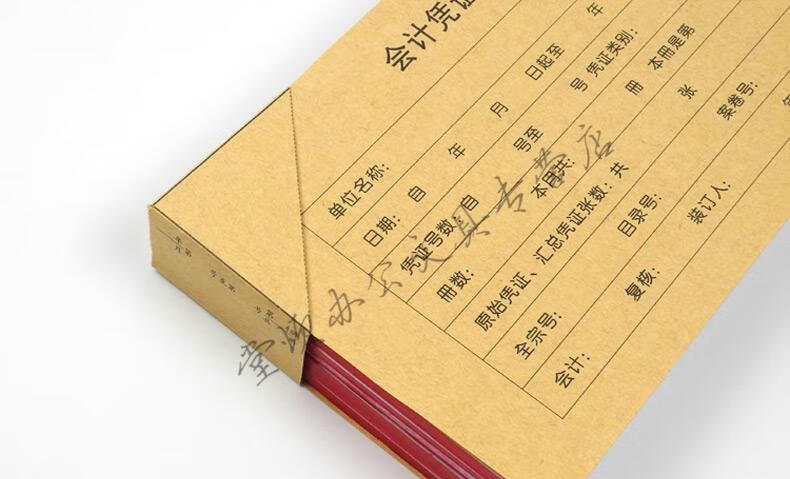 会计凭证
单位名称：
日期：自 年 月 日起至 年
凭证号数：自 号至 号 凭证类别：
冊数： 本月共： 冊 本冊是第
原始凭证、汇总凭证张数：共 张
全宗号： 目录号： 案卷号：
会计： 复核： 装订人：
办公文具专营店